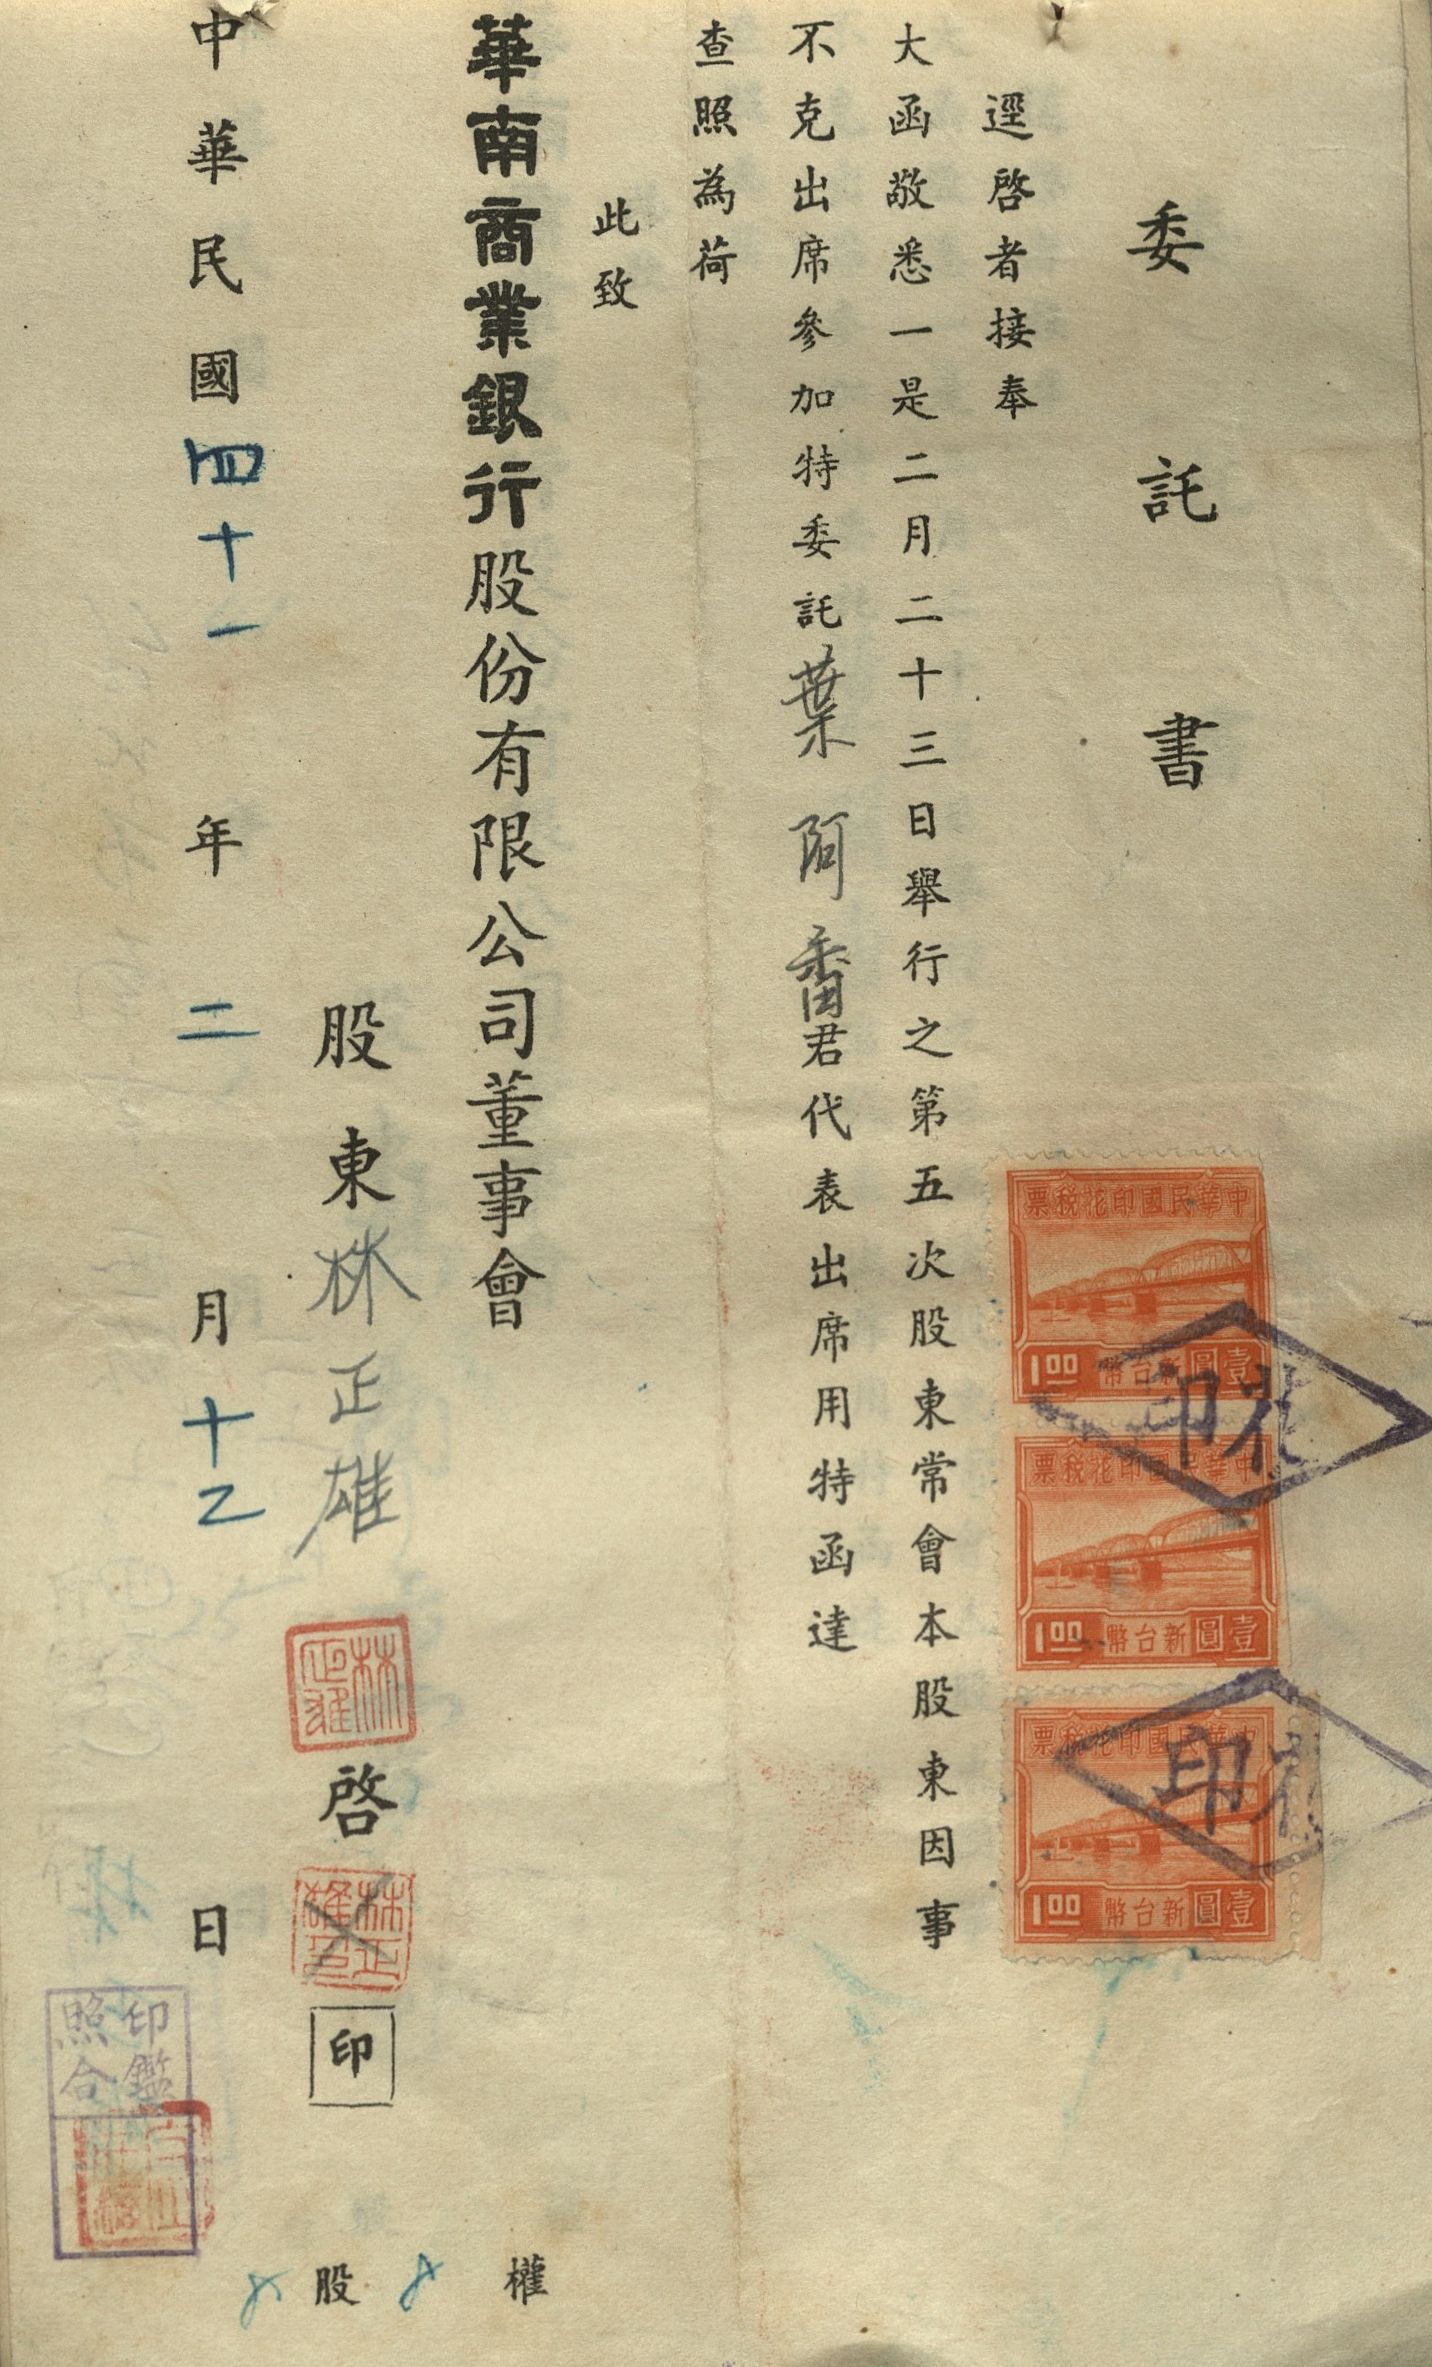 委託書
逕啓者接奉
大函敬悉一是二月二十三日舉行之第五次股東常會本股東因事
不克出席參加特委託葉阿番君代表出席用特函達
查照為荷
此致
華南商業銀行股份有限公司董事會
股東林正雄啓印
中華民國四十一年二月十乙日
權
股
票稅花印國民華中
1.00 幣台新圓壹
票稅花印國民華中
1.00 幣台新圓壹
票稅花印國民華中
1.00 幣台新圓壹
印花
印花
林正雄
林正雄印
印鑑
照合